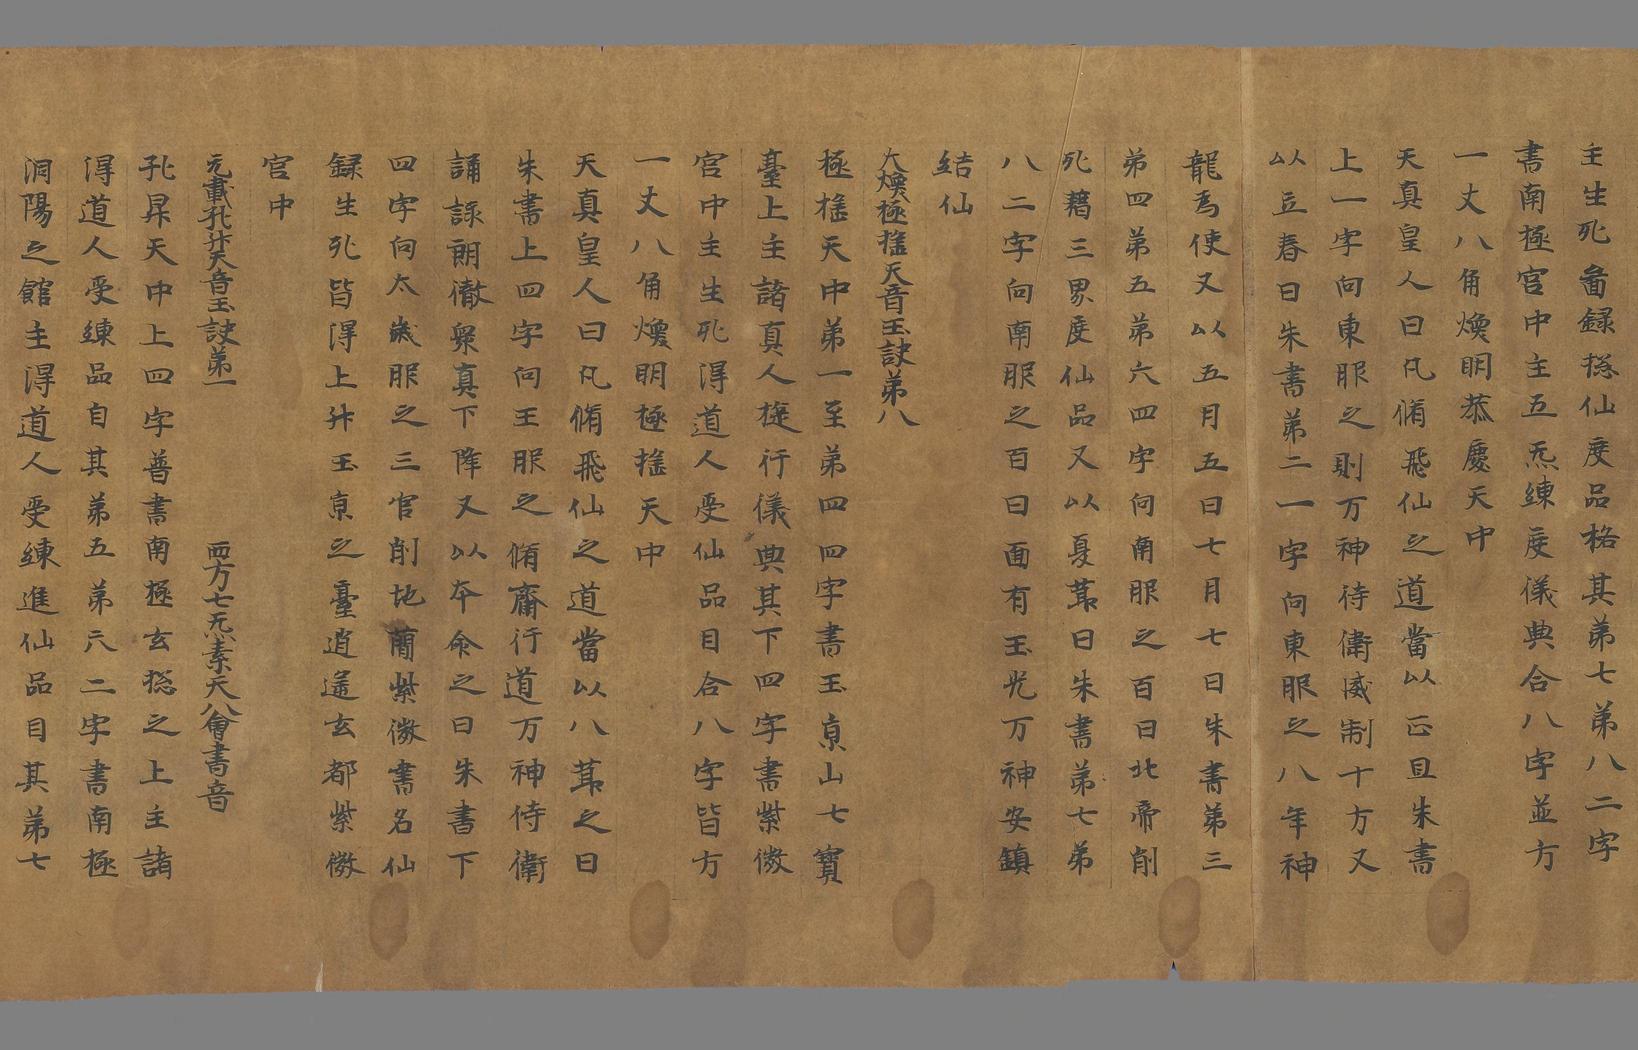 主生死啚録捴仙度品格其第七第八二字
書南極宮中主五炁練度儀典合八字並方
一丈八角煥明恭慶天中
天真皇人曰凡脩飛仙之道當以正旦朱書
上一字向東服之則万神侍衛威制十方又
以立春日朱書第二一字向東服之八年神
龍為使又以五月五日七月七日朱書第三
第四第五第六四字向南服之百日北帝削
死籍三界度仙品又以夏至日朱書第七第
八二字向南服之百日面有玉光万神安鎮
結仙
太煥極摇天音玉訣第八
極摇天中第一至第四四字書玉京山七寶
臺上主諸真人旋行儀典其下四字書紫微
宮中主生死得道人受仙品目合八字皆方
一丈八角煥明極摇天中
天真皇人曰凡脩飛仙之道當以八節之日
朱書上四字向王服之脩齋行道万神侍衛
誦詠朗徹衆真下降又以本命之日朱書下
四字向太歲服之三官削地簡紫微書名仙
録生死皆得上升玉京之臺逍遥玄都紫微
宮中
元載孔升天音玉訣第一　西方七炁素天八會書音
孔昇天中上四字普書南極玄捴之上主諸
得道人受練品自其第五第六二字書南極
洞陽之館主得道人受練進仙品目其第七